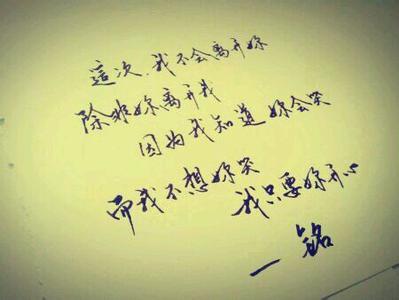 這次,我不会离开妳
除非妳离开我
因为我知道妳会哭
而我不想妳哭
我只要妳开心
一铭